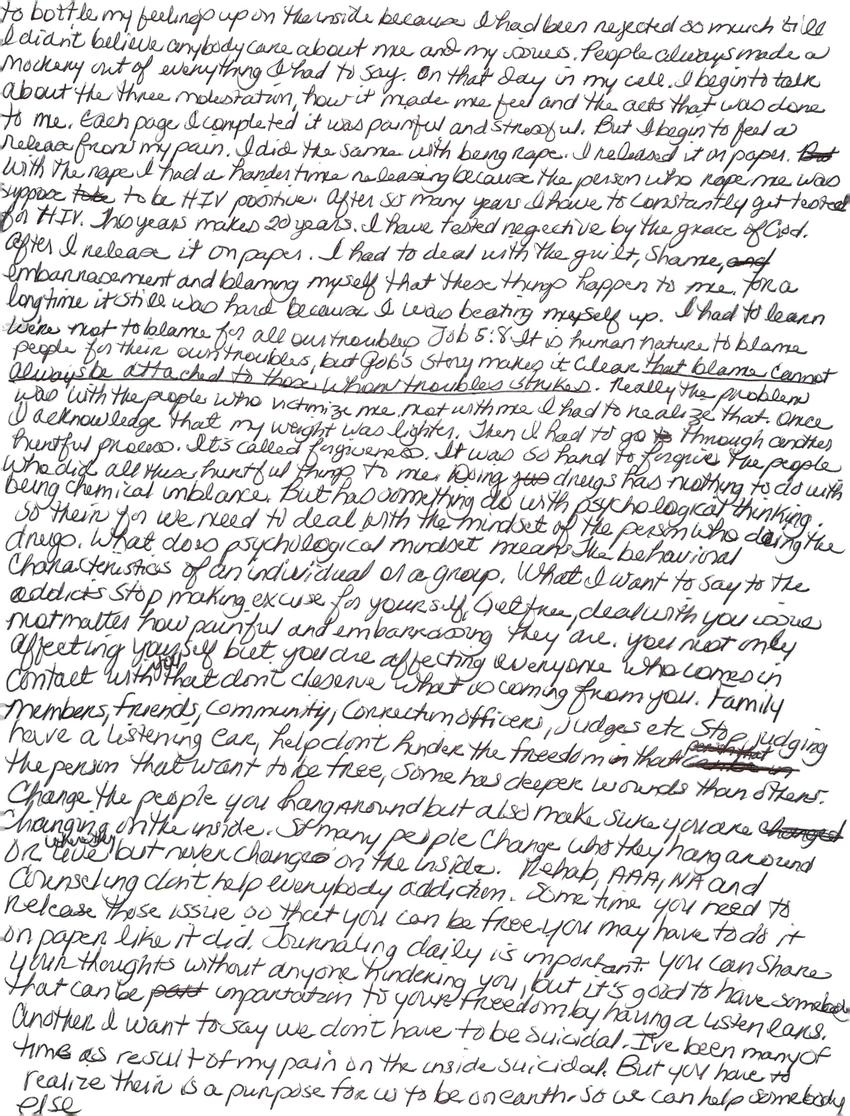 to bottle my feelings up on the inside because I had been rejected so much till
I didn't believe anybody care about me and my issues. People always made a
mockery out of everything I had to say. On that day in my cell. I begin to talk
about the three molestation, how it made me feel and the acts that was done
to me. Each page I completed it was painful and stressful. But I begin to feel a
release from my pain. I did the same with being rape. I released it on paper. But
with the rape I had a harder time releasing because the person who rape me was
suppose to be to be HIV positive. After so many years I have to constantly get tested
for HIV. This years makes 20 years. I have tested negective by the grace of God.
After I release it on paper. I had to deal with the guilt, shame, and
embarrassment and blaming myself that these things happen to me. For a
longtime it still was hard because I was beating myself up. I had to learn
we're not to blame for all our troubles Job 5:8 It is human nature to blame
people for their own troubles, but Job's story makes it clear that blame cannot
always be attached to those whom troubles strikes. Really the problem
was with the people who victimize me, not with me I had to realize that. Once
I acknowledge that my weight was lighter. Then I had to go through another
hurtful process. It's called forgiveness. It was so hard to forgive the people
who did all these hurtful things to me. Doing drugs has nothing to do with
being chemical imblance. But has something do with psychological thinking.
So their for we need to deal with the mindset of the person who doing the
drugs. What does psychological mindset means the behavioral
characteristics of an individual or a group. What I want to say to the
addicts stop making excuse for yourself, Get free, deal with you issue
not matter how painful and embarrassing they are. You not only
affecting yourself but you are affecting everyone who comes in
contact with you that don't deserve what is coming from you. Family
members, friends, community, correction officers, judges etc Stop judging
have a listening ear, help don't hinder the freedom in that
the person that want to be free, some has deeper wounds than others.
Change the people you hang around but also make sure you are changed
changing on the inside. So many people change who they hang around
or where they live but never change on the inside. Rehab, AAA, NA and
Counseling don't help everybody addiction. Some time you need to
release those issue so that you can be free you may have to do it
on paper like it did. Journaling daily is important. You can share
your thoughts without anyone hindering you, but it's good to have somebody
that can be impartation to your freedom by having a listen ears.
Another I want to say we don't have to be suicidal. I've been many of
time as result of my pain on the inside suicidal. But you have to
realize their is a purpose for us to be on earth. So we can help somebody
else